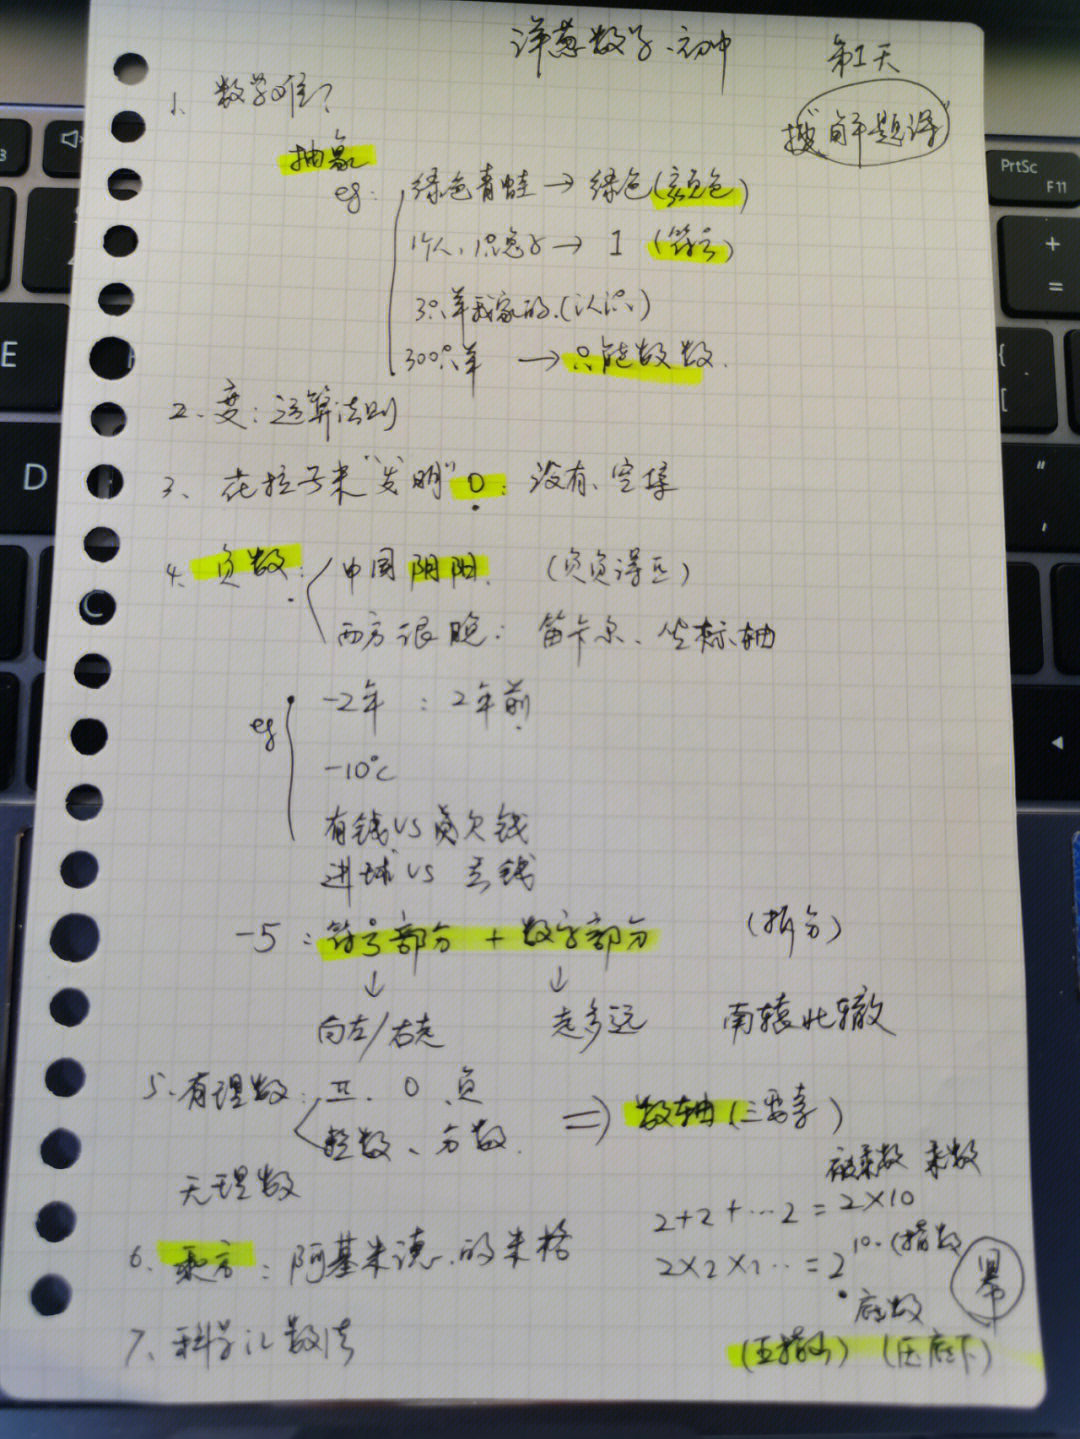 洋葱数学·初中 第1天
1、数学难?
搜"解题课"
抽象
eg: 绿色青蛙 → 绿色(颜色)
1个人、1只兔子 → 1 (符号)
3只羊我家的.(认识)
300只羊 → 只能数数.
2、变:运算法则
3、花拉子米"发明"0:没有、空集
4、负数:中国阴阳. (负负得正)
西方很晚:笛卡尔、坐标轴
eg -2年:2年前
-10℃
有钱VS 欠钱
进球VS 丢钱
-5:符号部分 + 数字部分 (拆分)
↓ ↓
向左/右走 走多远 南辕北辙
5、有理数:正、0、负
整数、分数. ⇒ 数轴(三要素)
无理数
被乘数 乘数
2+2+…2=2×10
6、乘方:阿基米德.的米格
2×2×2…=2 10.(指数
底数
幂
7、科学记数法
(五指山) (压底下)
PrtSc
F11
+
=
{
[
"
,
E
D
C